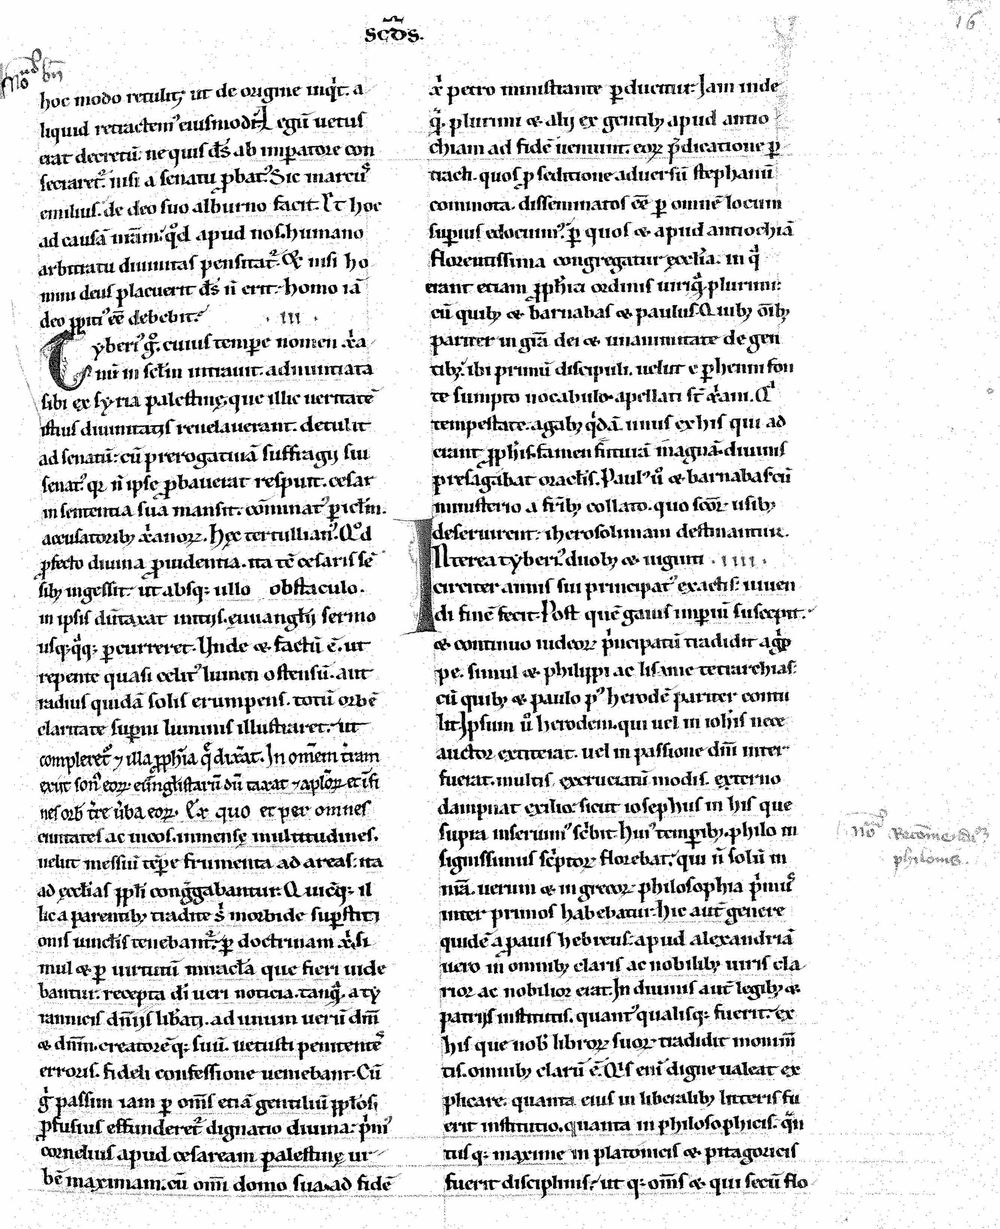 scd̄s.
16
Nō bn̄
hoc modo retulit; ut de origine inqͥt. a
liquid retractem᷒ eiusmodi. Legum uetus
erat decretū. ne quis d̄s ab imꝑatore con
secraret᷒. nisi a senatu ꝓbat᷒. Sic marcus
emilius. de deo suo alburno facit. Et hoc
ad causā nr̄am. qͦd apud nos. humano
arbitratu diuinitas pensitat᷒. & nisi ho
mini deus placuerit d̄s n̄ erit. homo iā
deo ꝓpiti᷒ eē debebit.
.III.
Tyberi᷒ gͦ. cuius temꝑe nomen xͥa
nū in sc̄lm intrauit. adnuntiata
sibi ex syria palestinę. que illic ueritatē
istius diuinitatis reuelauerant. detulit
ad senatū. cū prerogatiuā suffragij sui
senat᷒. qꝛ n̄ ipse ꝓbauerat respuit. cesar
in sententia sua mansit. cōminat᷒ ꝑicl̄m.
accusatorib; xͥanoꝝ. Hęc tertullian᷒. Qͦd
ꝓfecto diuina ꝓuidentia. ita tc̄ cesaris sē
sib; ingessit. ut absq; ullo obstaculo.
in ipsis dūtaxat initijs. ęuuanglij sermo
usq;qͣq; ꝑcurreret. Unde & factū ē. ut
repente quasi celit᷒ lumen ostensū. aut
radius quidā solis erumpens. totū orbē
claritate suꝑni luminis illustraret. ut
compleret᷒ ⁊ illa ꝓph̄ia qͣ dixͣat. In om̄em tr̄am
exiit son᷒ eoꝝ euūglistarū dū taxat ⁊ aplōꝝ et ī fi
nes orb᷒ tr̄e ūba eoꝝ. Ex quo et per omnes
ciuitates ac uicos. inmensę multitudines.
uelut messiū tēpe frumenta ad areas. ita
ad ęcclias pp̄li cong̅gabantur. Quicq̄; il
lic a parentib; tradite s; morbide suꝑstiti
onis uinclis tenebant᷒. ꝑ doctrinam xͥ. si
mul & ꝑ uirtutū miracl̄a que fieri uide
bantur. recepta di ueri noticia. tanqͣ. a ty
rannicis dn̄ijs libati. ad unum uerū dm̄
& dn̄m. creatorēq; suū. uetusti penitentes
erroris. fideli confessione ueniebant. Cū
gͥ passim iam ꝑ om̄s etiā gentiliū pp̄los
ꝓfusius effunderet᷒ dignatio diuina. pͥm᷒
cornelius apud cesaream palestinę ur
bē maximam. cū om̄i domo sua. ad fidē
xͥ petro ministrante ꝑducitur. Iam inde
qͥ. plurimi & alij ex gentib; apud antio
chiam ad fidē ueniunt. eoꝝ p̄dicatione ꝑ
tracti. quos ꝓ seditione aduersū stephanū
commota. disseminatos eē ꝑ omnē locum
suꝑius edocuim᷒. ꝑ quos & apud antiochiā
florentissima congregatur ęcclia. in qͣ
erant etiam ꝓph̄ia ordinis uiriqͣ. plurimi.
cū quib; & barnabas & paulus. Quib; om̄ib;
pariter in gr̄a dei & unanimitate degen
tib;. ibi primū discipuli. uelut e ꝑhenni fon
te sumpto uocabulo. apellati st̄ xͥani. Qͣ
tempestate. agab; qͥdā. unus ex his qui ad
erant ꝓph̄is. famen futurā magnā. diuinis
presagabat oraclis. Paul᷒ ū & barnabas. cū
ministerio a fr̄ib; collato. quo scōꝝ usib;
deseruirent. iherosolimam destinantur.
Interea tyberi᷒ duob; & uiginti .IIII.
circiter annis sui principat᷒ exactis. uiuen
di finē fecit. Post quē gaius imꝑiū suscepit.
& continuo iudeoꝝ pͥncipatū tradidit agͥp
pe. simul & philippi ac lisanie tetrarchias.
cū quib; & paulo p᷒ herodē pariter contu
lit. Ipsum ū herodem. qui uel in ioh̄is nece
auctor extiterat. uel in passione dn̄i inter
fuerat. multis excruciatū modis. externo
dampnat exilio. sicut iosephus in his que
supra inseruim᷒ scͥbit. Hui᷒ tempib;. philo in
signissimus scͥptor florebat. qui n̄ solū in
nr̄a. uerum & in grecoꝝ philosophia pͥmus
inter primos habebatur. hic aut̄ genere
quidē a ꝓauis hebreus. apud alexandriā
uero in omnib; claris ac nobilib; uiris cla
rior ac nobilior erat. In diuinis aut̄ legib; &
patrijs institutis. quant᷒ qualisq; fuerit. ex
his que nob̄ libroꝝ suoꝝ tradidit monim̄
tis. omnib; clarū ē. Qͥs eni digne ualeat ex
plicare. quanta eius in liberalib; litteris fu
erit institutio. quanta in philosophicis. qͣn
tusq; maxime in platonicis & pitagoricis
fuerit disciplinis. ut q; om̄s & qui secū flo
Nō Recōme
philonis.